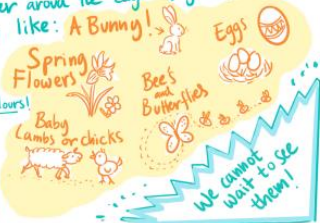 like: A Bunny!
Eggs
Spring
Flowers
Bee's
and
Butterflies
lours!
Baby
Lambs or chicks
We cannot
wait to see
them!